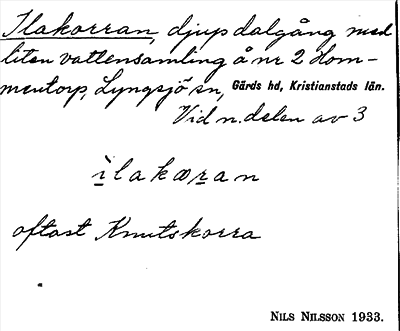 Ilakorran, djup dalgång med
liten vattensamling å nr 2 Hom-
mentorp, Lyngsjö sn, Gärds hd, Kristianstads län.
Vid n. delen av 3
ìlakæran
oftast Knutskorra
NILS NILSSON 1933.